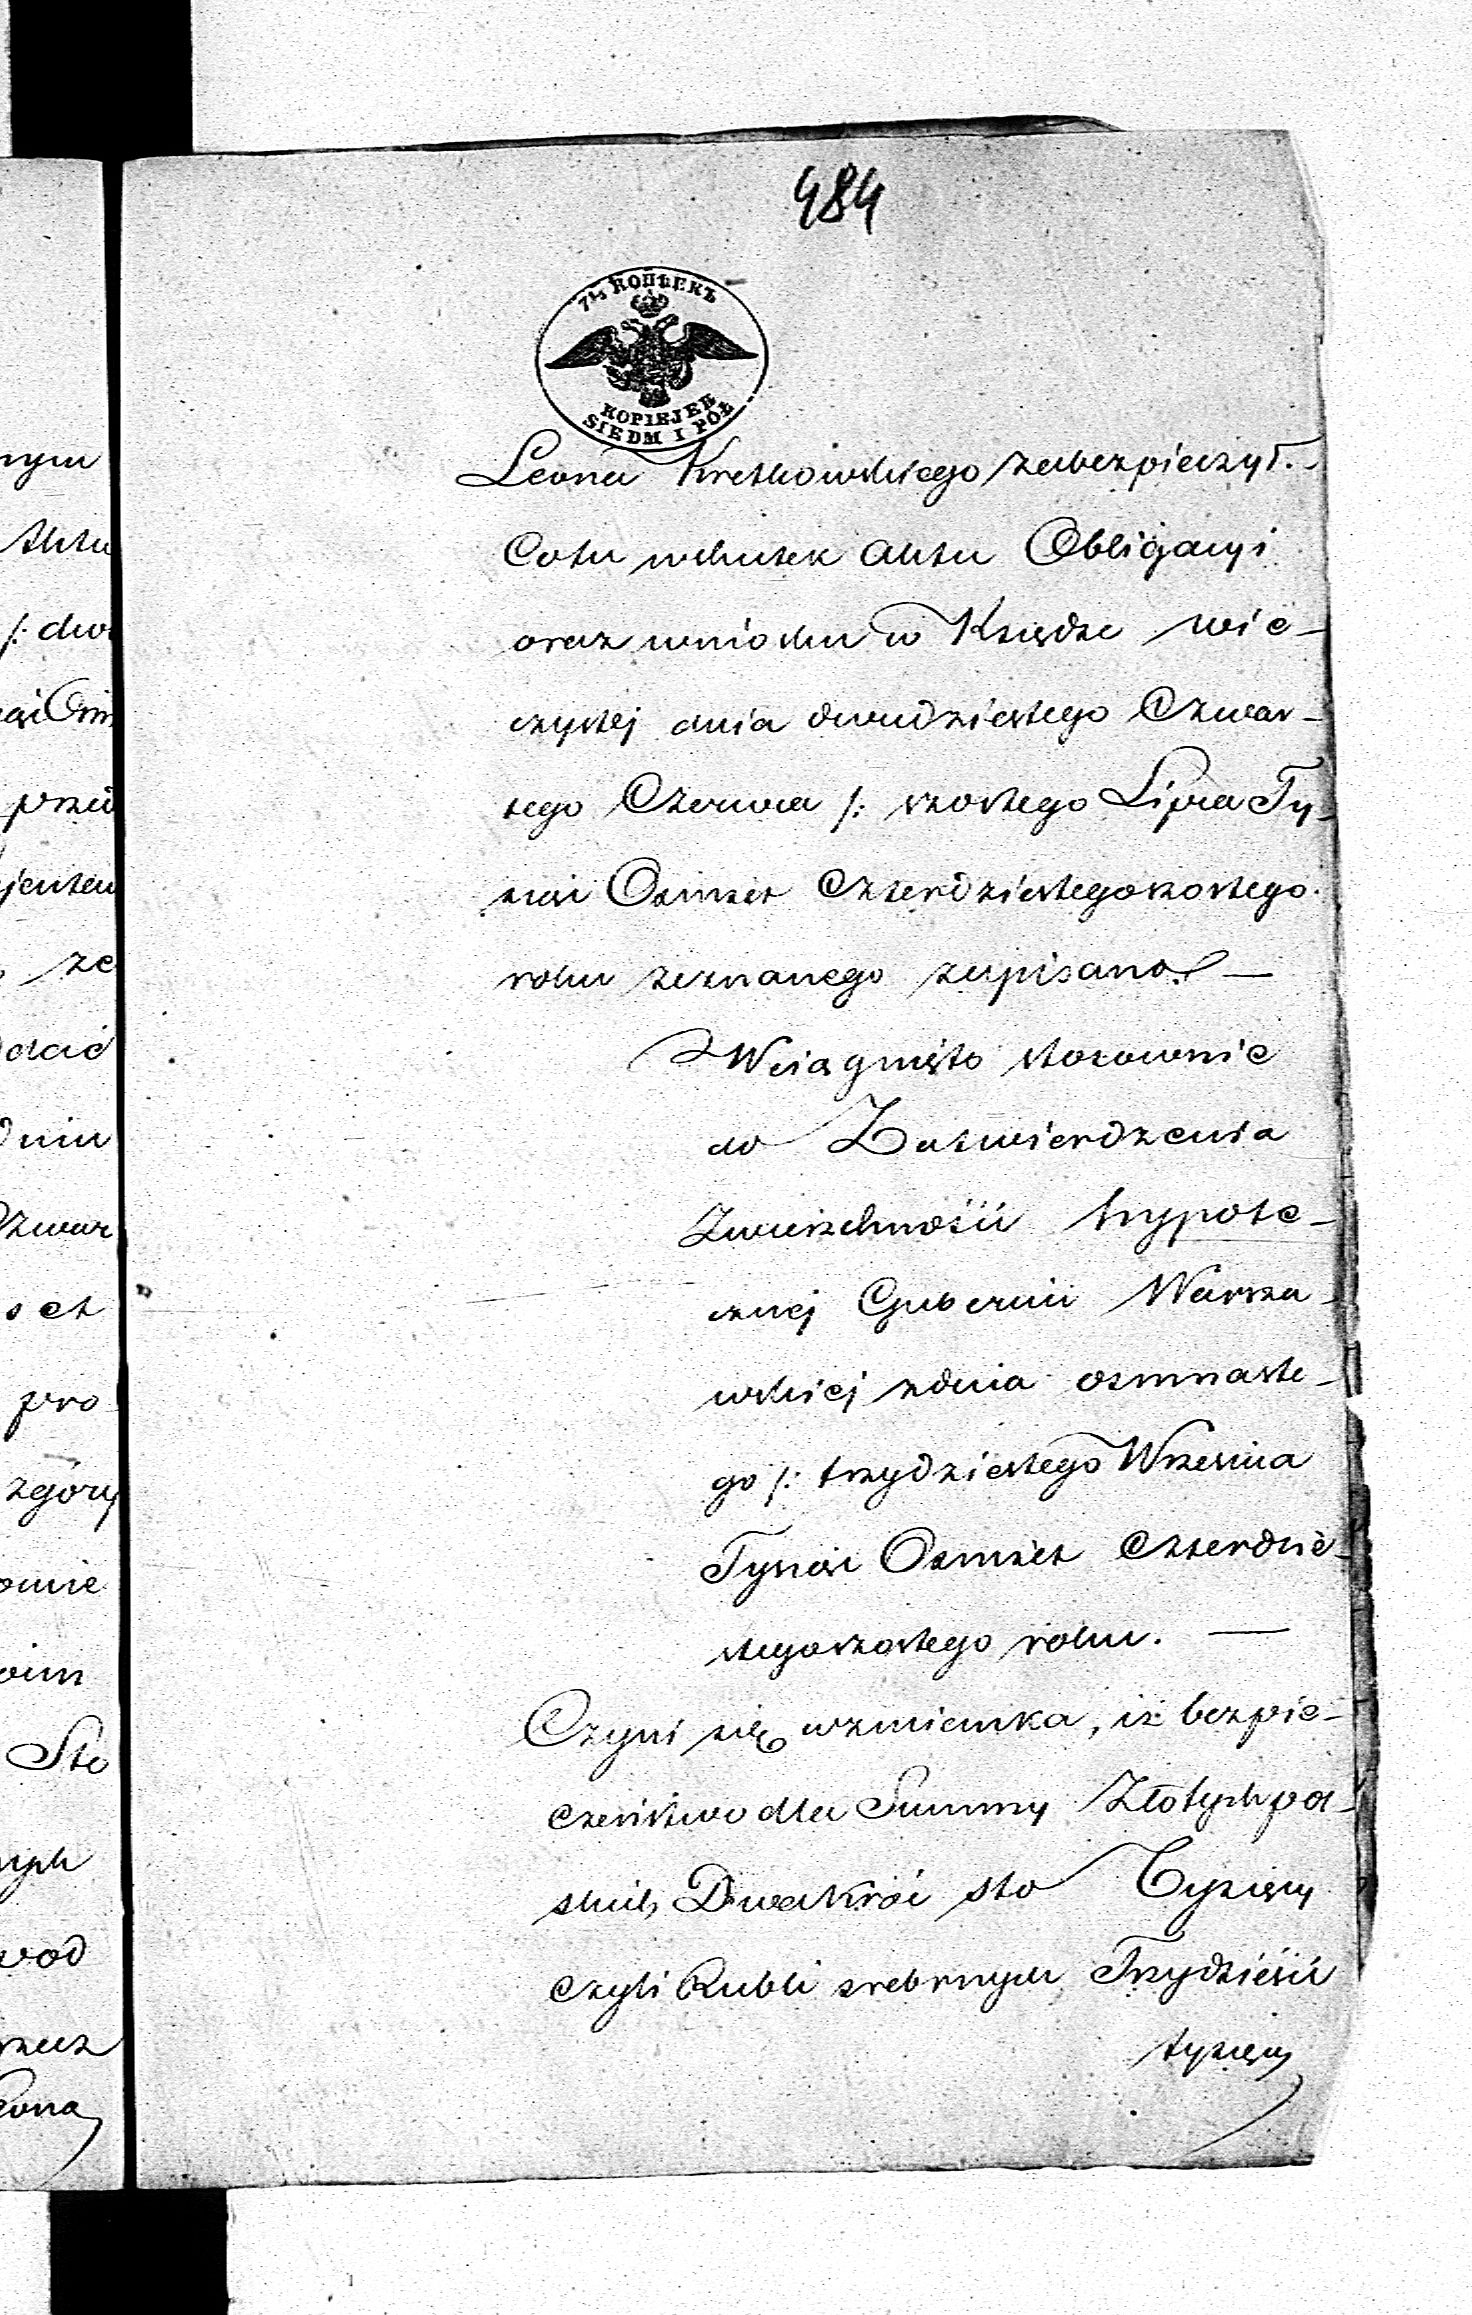 484
7½ КОПѢЕКЪ
KOPIEJEK
SIEDM I PÓŁ
Leona Kretkowskiego zabezpieczył.
Co tu wskutek Aktu Obligacyi
oraz wniosku w Księdze wie-
czystej dnia dwudziestego Czwar-
tego Czerwca /: szostego Lipca Ty-
siąc Osmset Czterdziestegoszostego
roku zeznanego zapisano. —
Wciągnięto stosownie
do Zatwierdzenia
Zwierzchności hypote-
cznej Gubernii Warsza-
wskiej z dnia osmnaste-
go /: trzydziestego Września
Tysiąc Osmset Czterdzie-
stegoszostego roku. —
Czyni się wzmianka, iż bezpie-
czeństwo dla Summy Złotych pol-
skich Dwakroć sto Tysięcy
czyli Rubli srebrnych Trzydzieści
tysięcy
nym
Aktu
/: dwu
przed
że
dniu
set
pro
zgóry
Sto
nych
wod
Leona